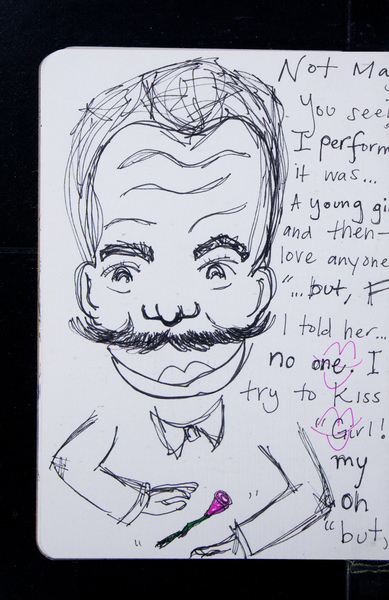 Not Ma
You see
I perform
it was...
A young gi
and then-
love anyone
"...but, F
I told her...
no one. I
try to Kiss
"Girl!
my
oh
"but,